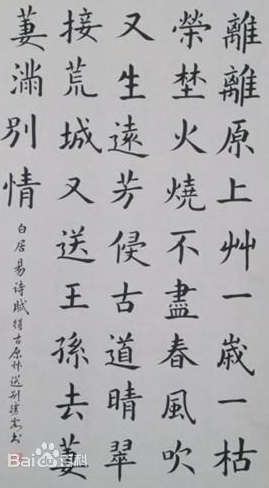 離離原上艸一歲一枯
榮埜火燒不盡春風吹
又生遠芳侵古道晴翠
接荒城又送王孫去萋
萋滿別情
白居易诗賦得古原艸送别
Bai百科